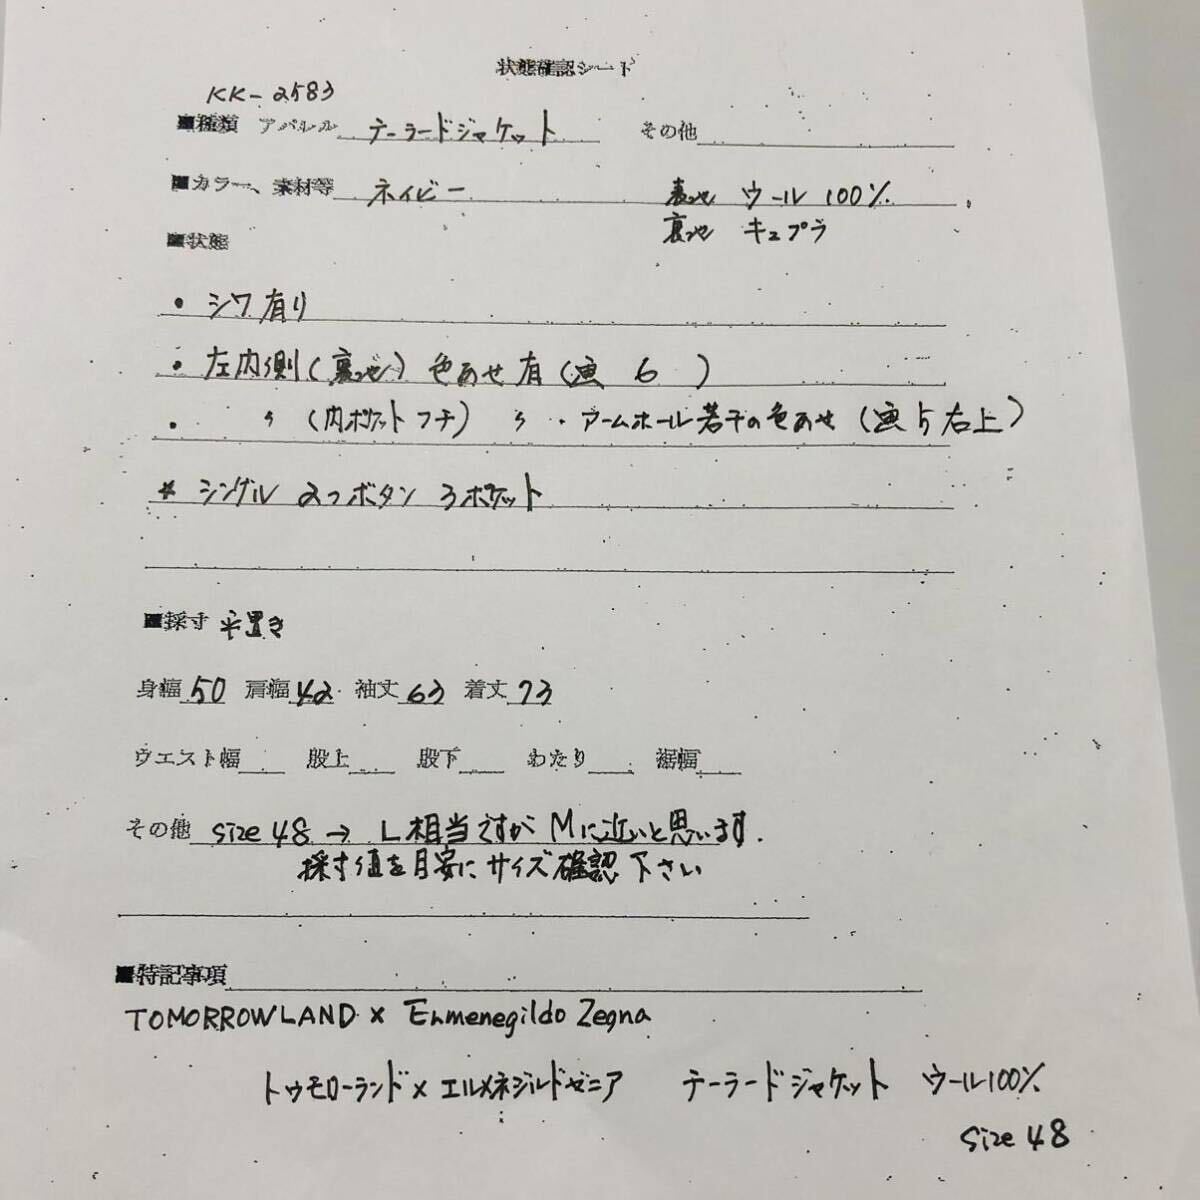 状態確認シート
KK-2583
■種類 アパレル テーラードジャケット その他
■カラー、素材等 ネイビー 表地 ウール 100%
裏地 キュプラ
■状態
・シワ有り
・左内側(裏地)色あせ有(画 6 )
・ 〃 (内ポケットフチ) 〃 ・アームホール若干の色あせ(画5右上)
* シングル 2つボタン 3ポケット
■採寸 平置き
身幅 50 肩幅 42 袖丈 63 着丈 73
ウエスト幅 股上 股下 わたり 裾幅
その他 size 48 → L相当ですが Mに近いと思います.
採寸値を目安にサイズ確認下さい
■特記事項
TOMORROWLAND × Ermenegildo Zegna
トゥモローランド×エルメネジルドゼニア テーラードジャケット ウール100%
size 48